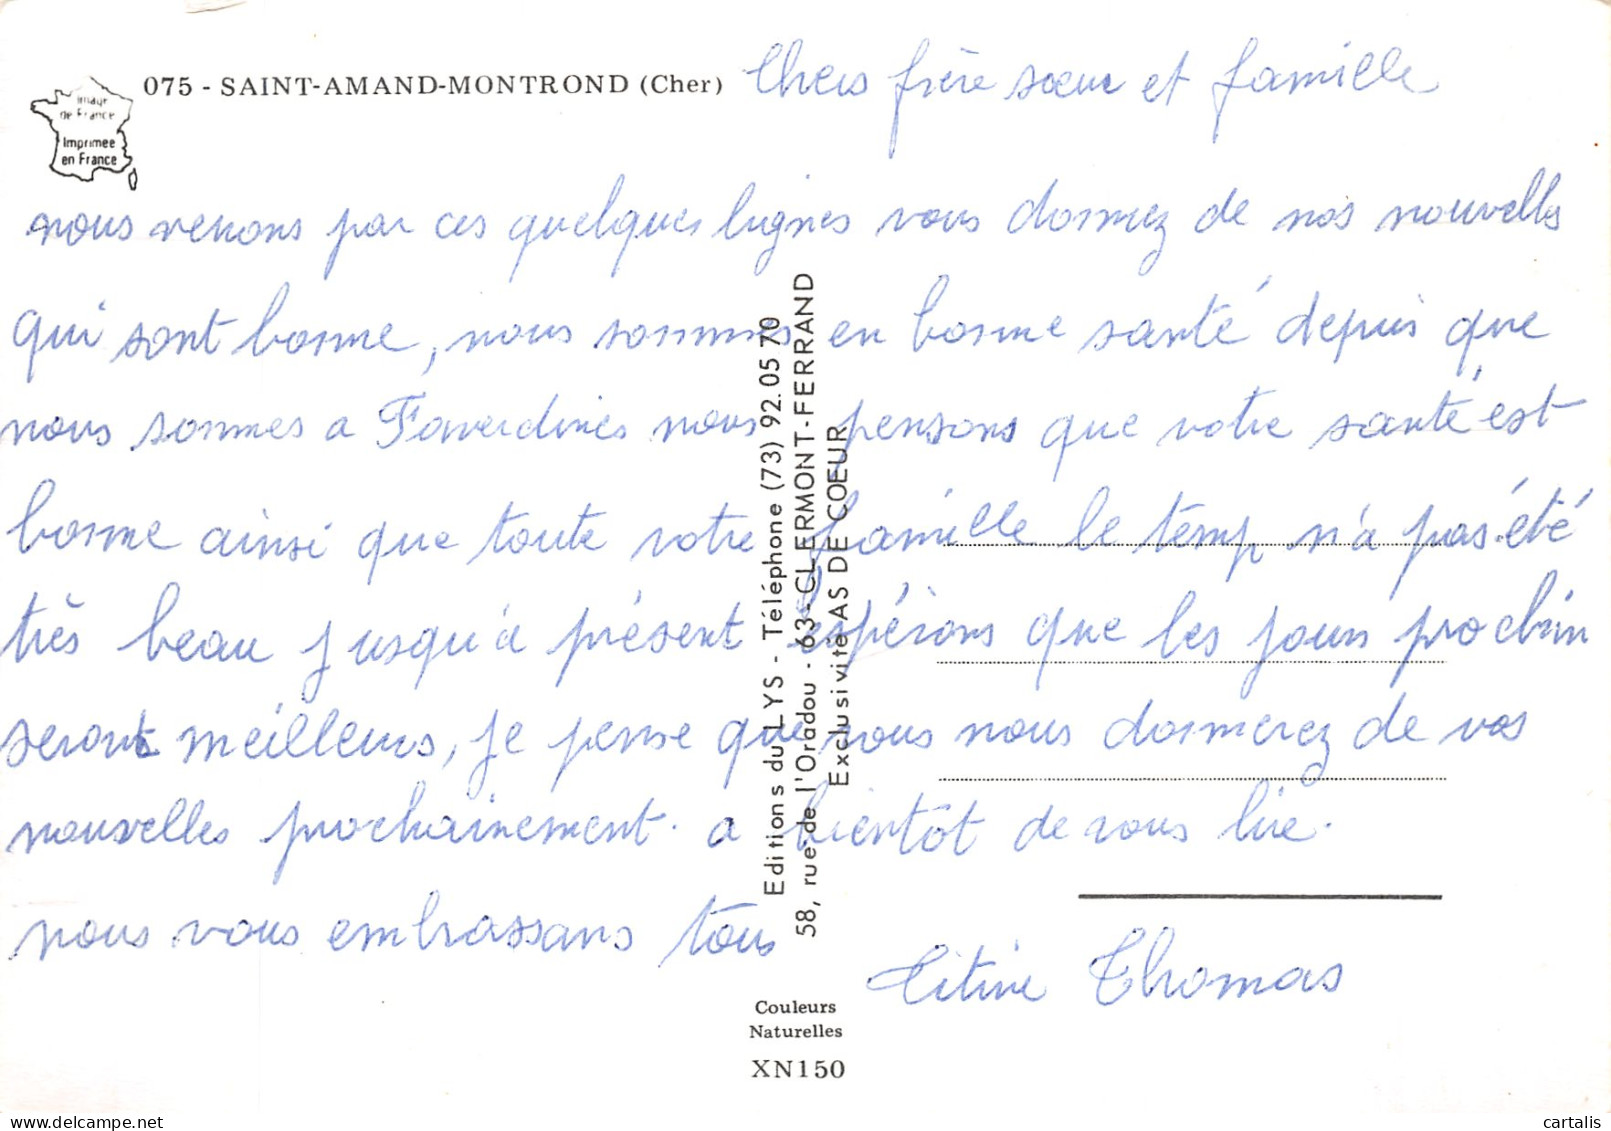 075 - SAINT-AMAND-MONTROND (Cher)
Image
de France
Imprimée
en France
Chers frère sœur et famille
nous venons par ces quelques lignes vous donnez de nos nouvelles
qui sont bonne, nous sommes en bonne santé depuis que
nous sommes a Faverdines nous pensons que votre santé est
bonne ainsi que toute votre famille le temp n'a pas été
très beau jusqu'à présent espérons que les jours prochin
seront meilleurs, je pense que vous nous donnerez de vos
nouvelles prochainement. a bientôt de vous lire.
nous vous embrassans tous
Titine Thomas
Editions du LYS - Téléphone (73) 92.05 70
58, rue de l'Oradou - 63-CLERMONT-FERRAND
Exclusivité AS DE COEUR
Couleurs
Naturelles
XN150
cartalis
delcampe.net